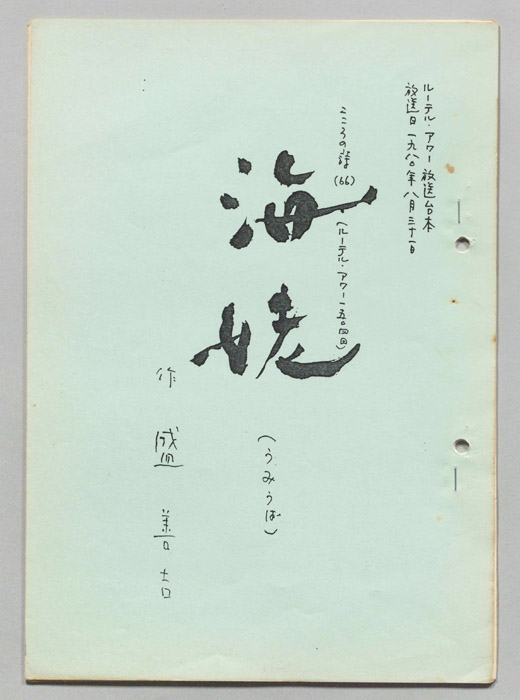 ルーテル・アワー 放送台本
放送日 一九八〇年 八月三十一日
こころの詩(66)(ルーテル・アワー一五〇四回)
海姥
(うみうば)
作 盛 善吉